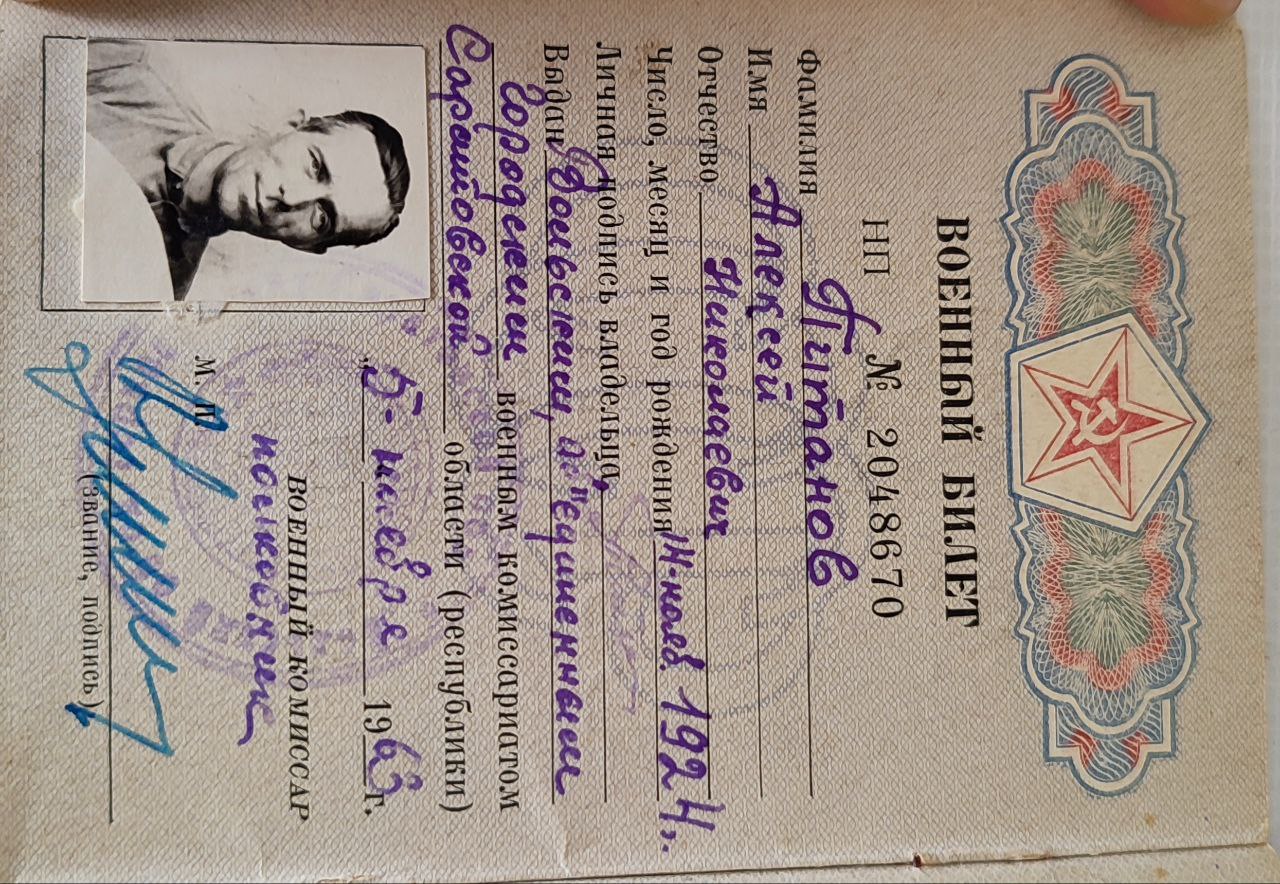 ВОЕННЫЙ БИЛЕТ
НП № 2048670
Фамилия Титанов
Имя Алексей
Отчество Николаевич
Число, месяц и год рождения 14-нояб. 1924 г.
Личная подпись владельца
Выдан Вольским, объединенным
городским военным комиссариатом
Саратовской области (республики)
„5" 1963 г.
ВОЕННЫЙ КОМИССАР
М. П. полковник
(Звание, подпись)